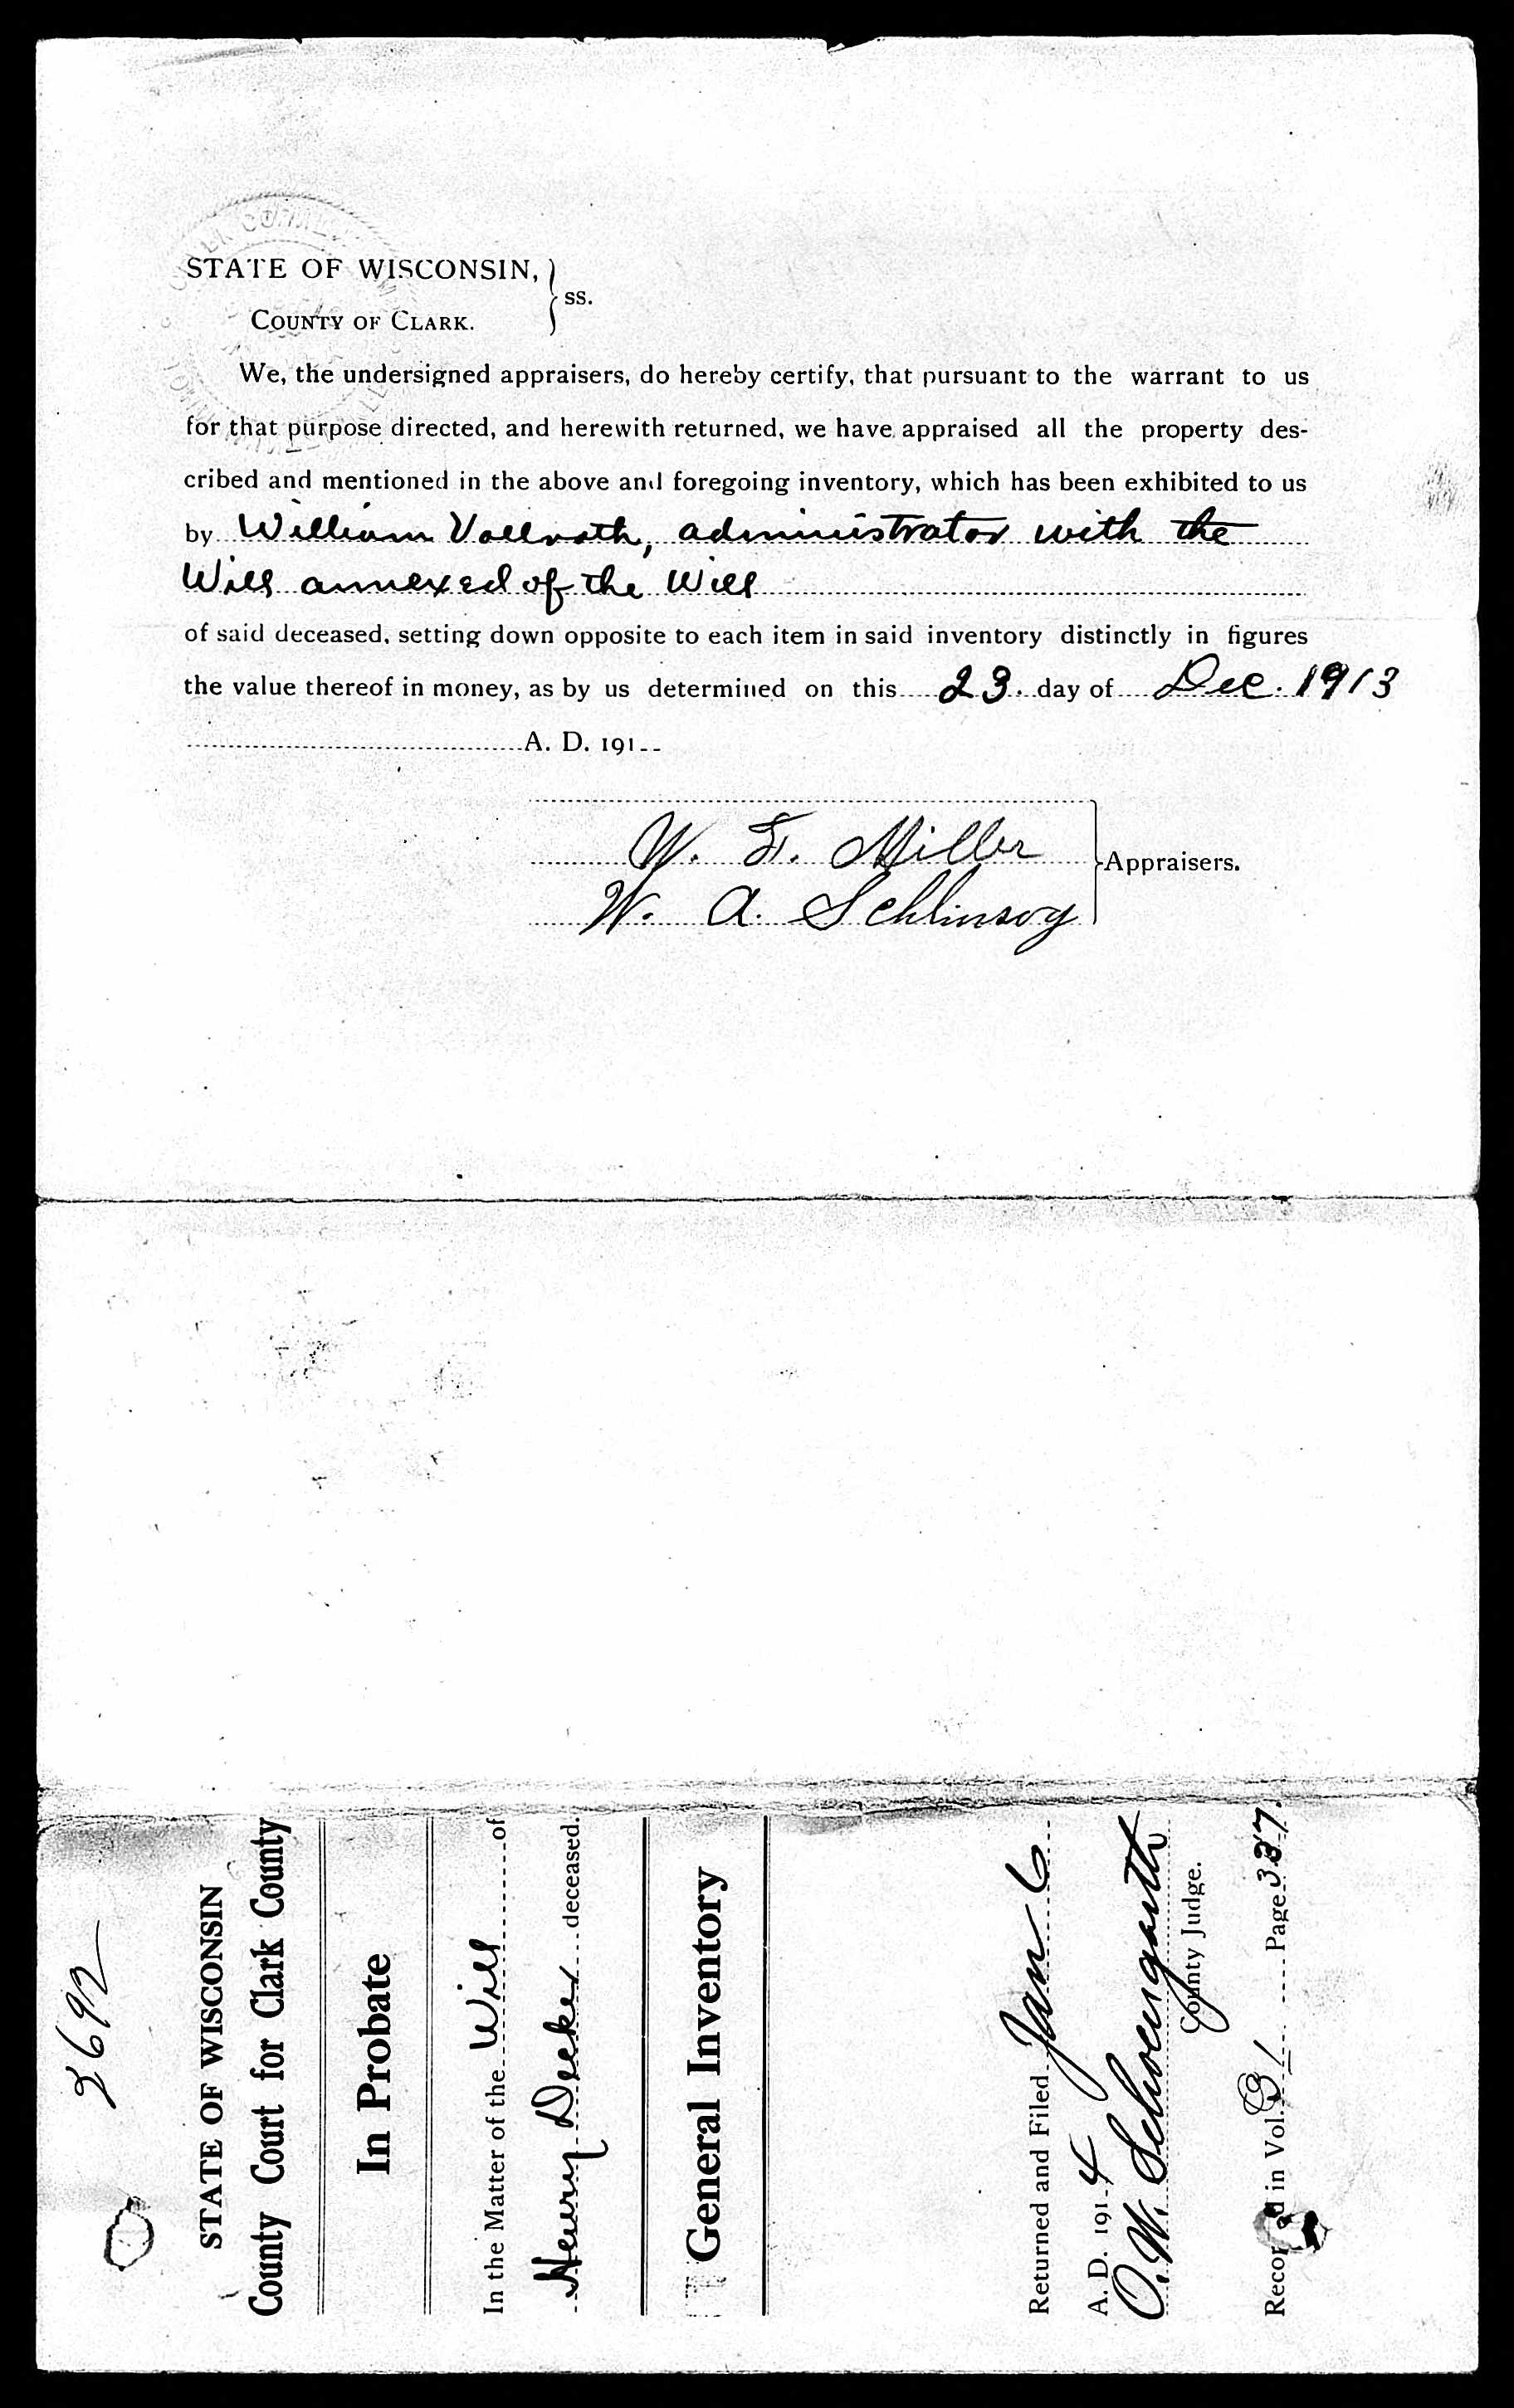 STATE OF WISCONSIN,
COUNTY OF CLARK. } ss.
We, the undersigned appraisers, do hereby certify, that pursuant to the warrant to us
for that purpose directed, and herewith returned, we have appraised all the property des-
cribed and mentioned in the above and foregoing inventory, which has been exhibited to us
by William Vollrath, administrator with the
Will annexed of the Will
of said deceased, setting down opposite to each item in said inventory distinctly in figures
the value thereof in money, as by us determined on this 23. day of Dec. 1913
A. D. 191
W. F. Miller
W. A. Schlinsog
Appraisers.
2692
STATE OF WISCONSIN
County Court for Clark County
In Probate
In the Matter of the Will of
Henry Decker deceased.
General Inventory
Returned and Filed Jan 6
A. D. 1914
O. W. Schoengarth
County Judge.
Recorded in Vol. 31 Page 337.